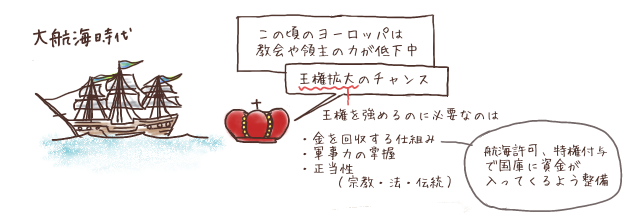 大航海時代
この頃のヨーロッパは
教会や領主の力が低下中
王権拡大のチャンス
王権を強めるのに必要なのは
・金を回収する仕組み
・軍事力の掌握
・正当性
（宗教・法・伝統）
航海許可、特権付与
で国庫に資金が
入ってくるよう整備